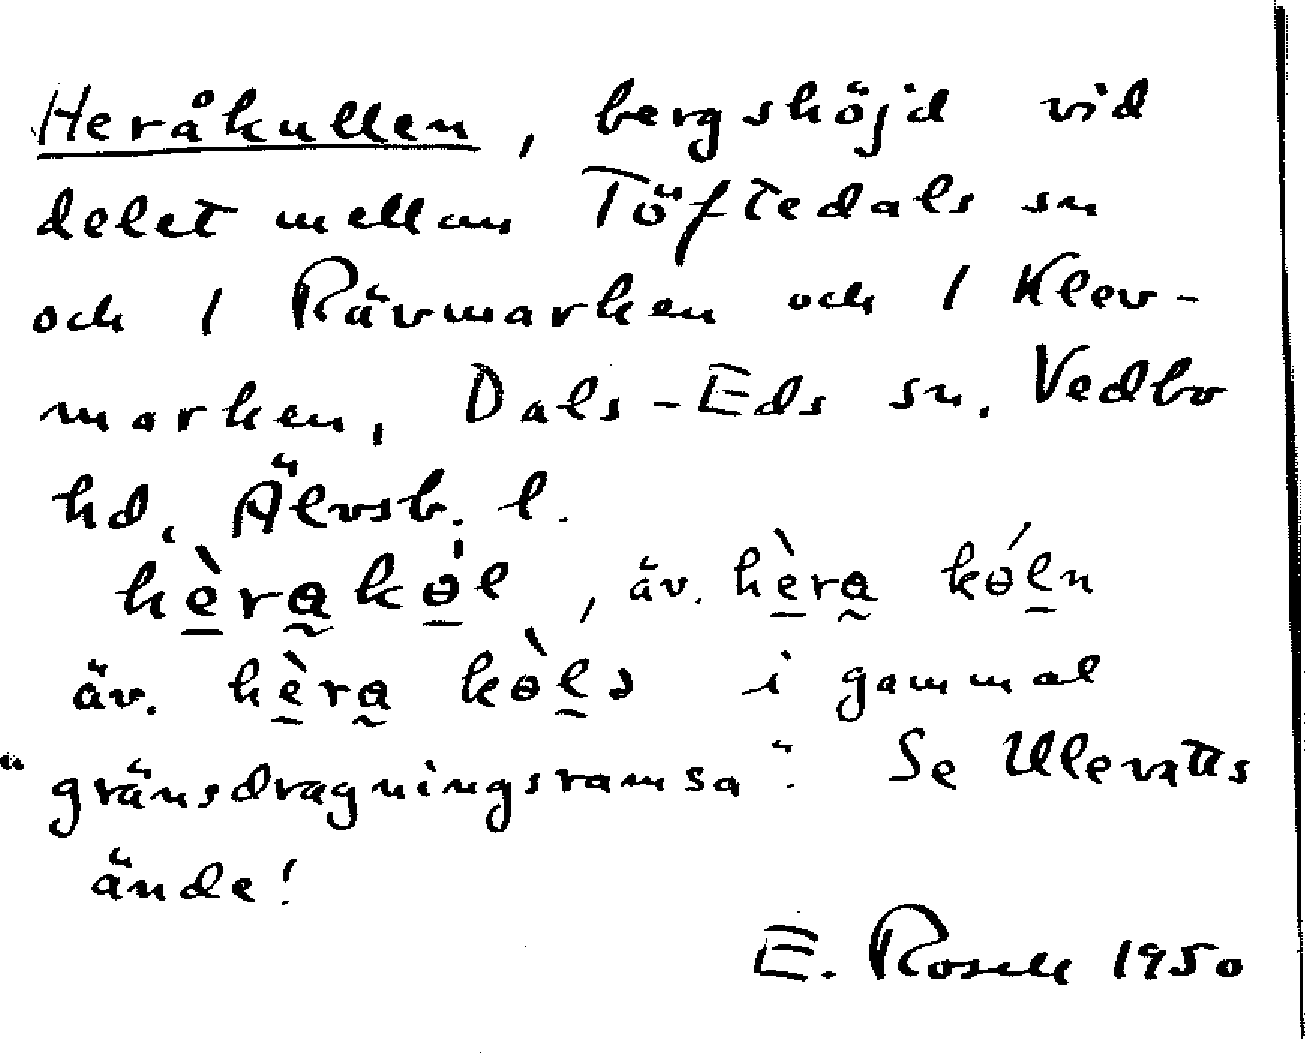 Heråkullen, bergshöjd vid
delet mellan Töftedals sn
och 1 Rävmarken och 1 Klev-
marken, Dals-Eds sn. Vedbo
hd. Älvsb. l.
hèra̰kɵ́l, äv. hèra̰ kɵ́ln
äv. hèra̰ kɵ̀ls i gammal
"gränsdragningsramsa". Se Ulevatts
ände!
E. Rosell 1950